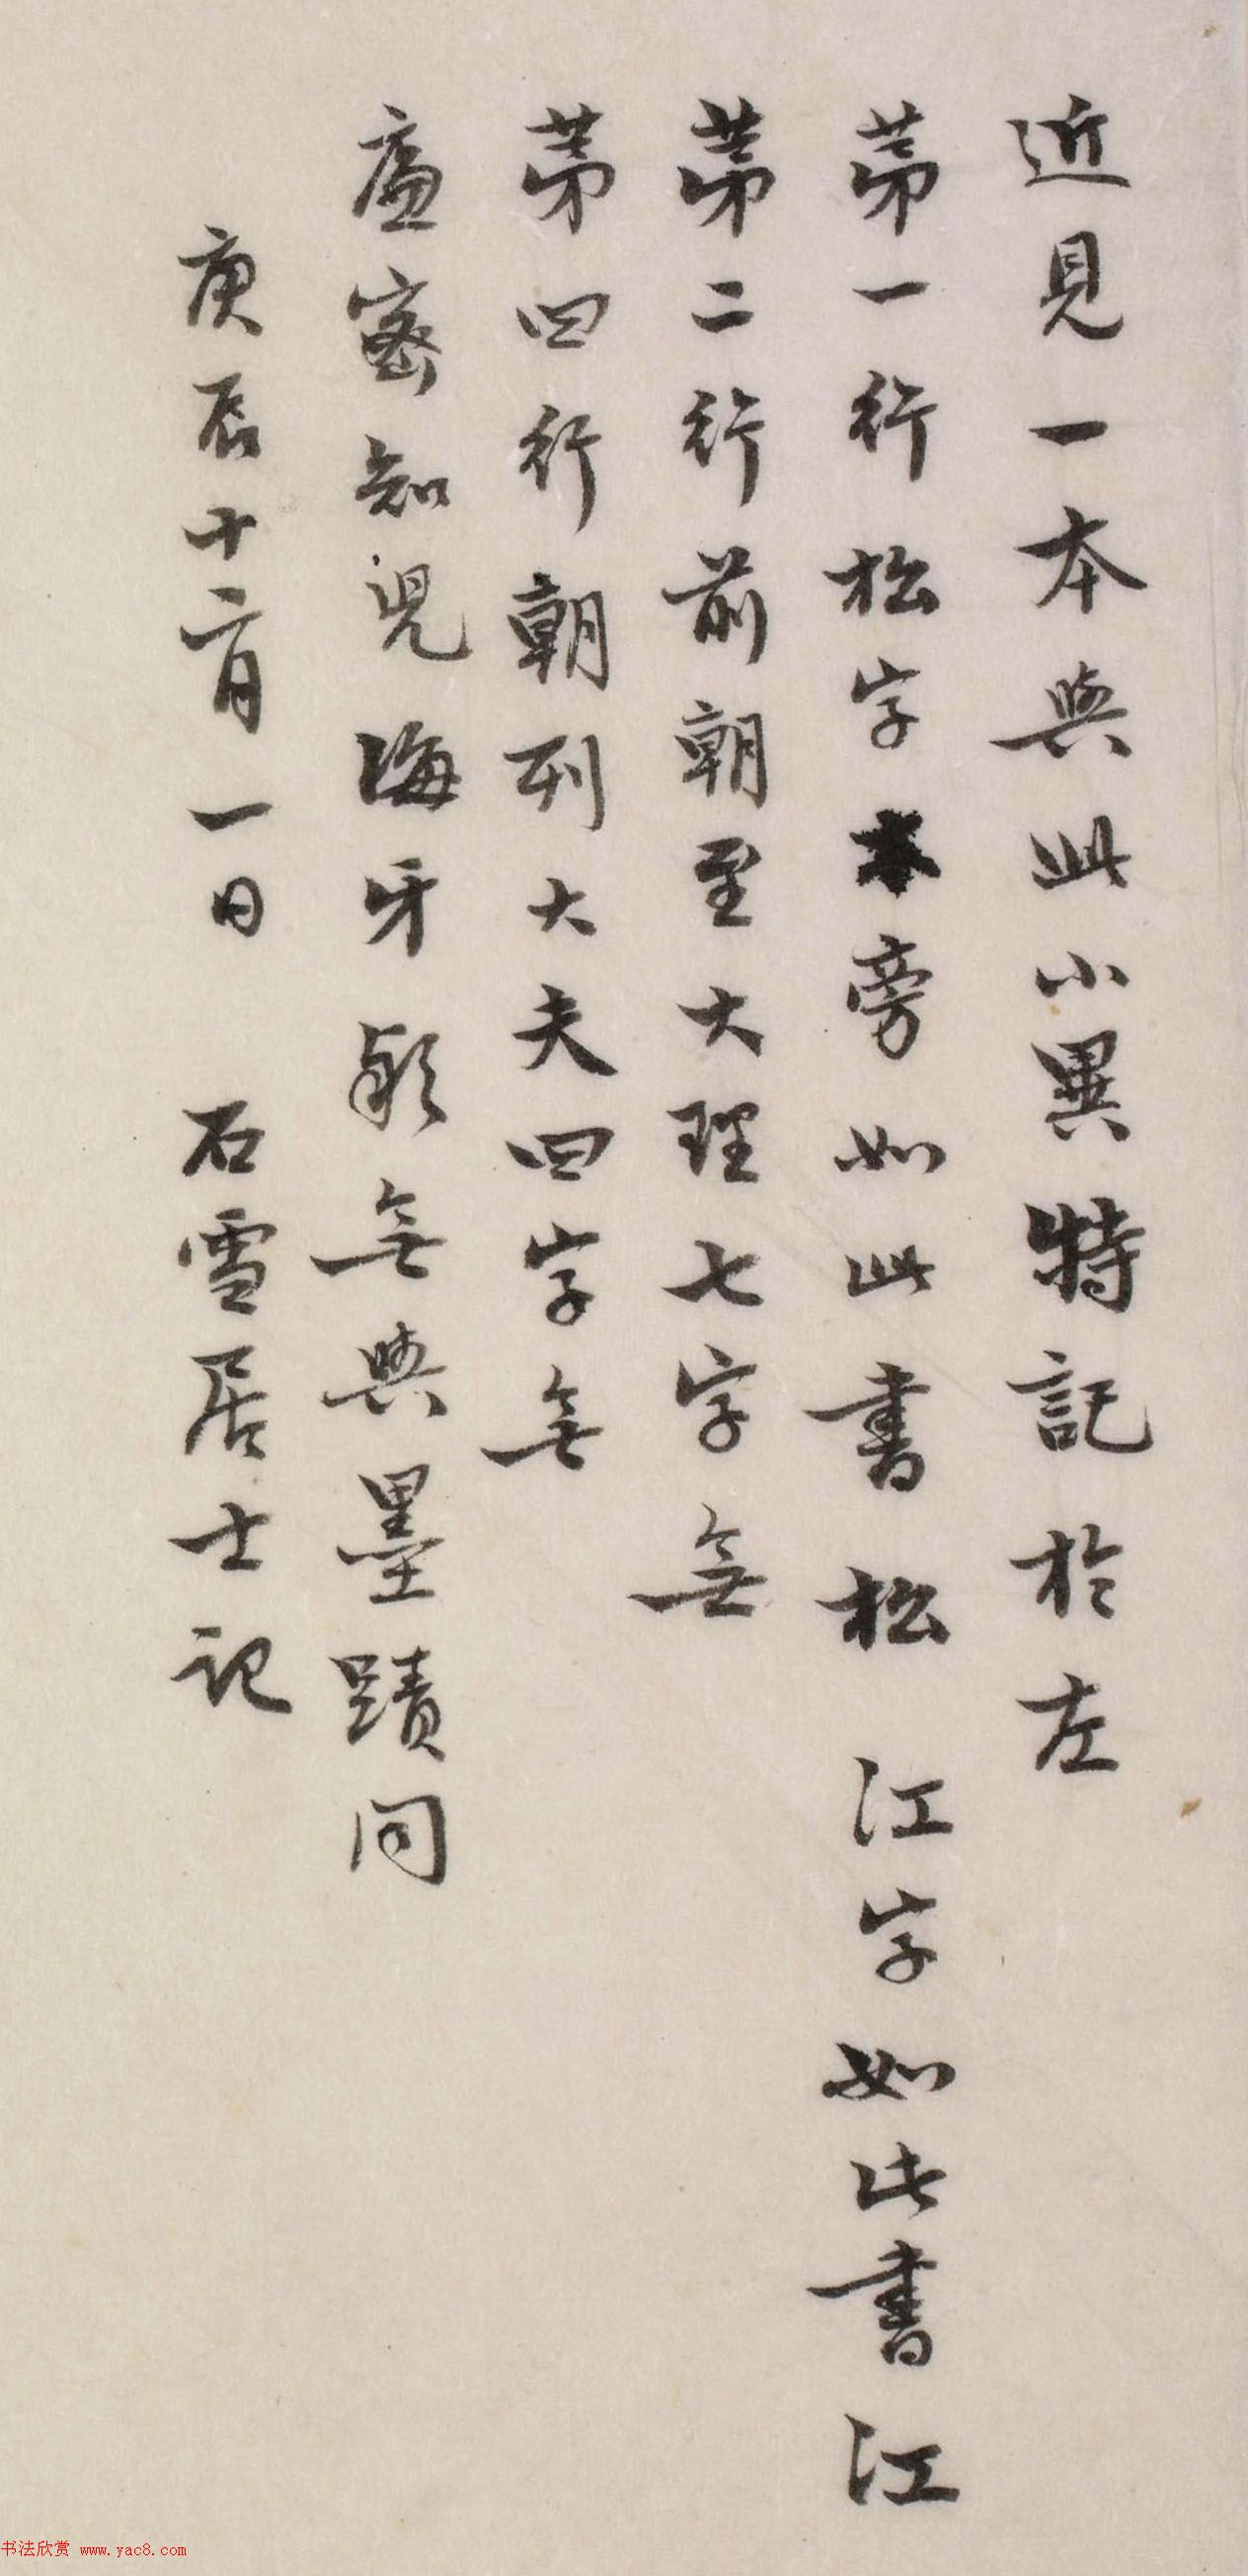 近見一本與此小異特記於左
第一行松字本旁如此書松 江字如此書江
第二行前朝至大理七字無
第四行朝列大夫四字無
廉密知兒海牙 無與墨蹟同
庚辰十二月一日 石雪居士記
书法欣赏 www.yac8.com